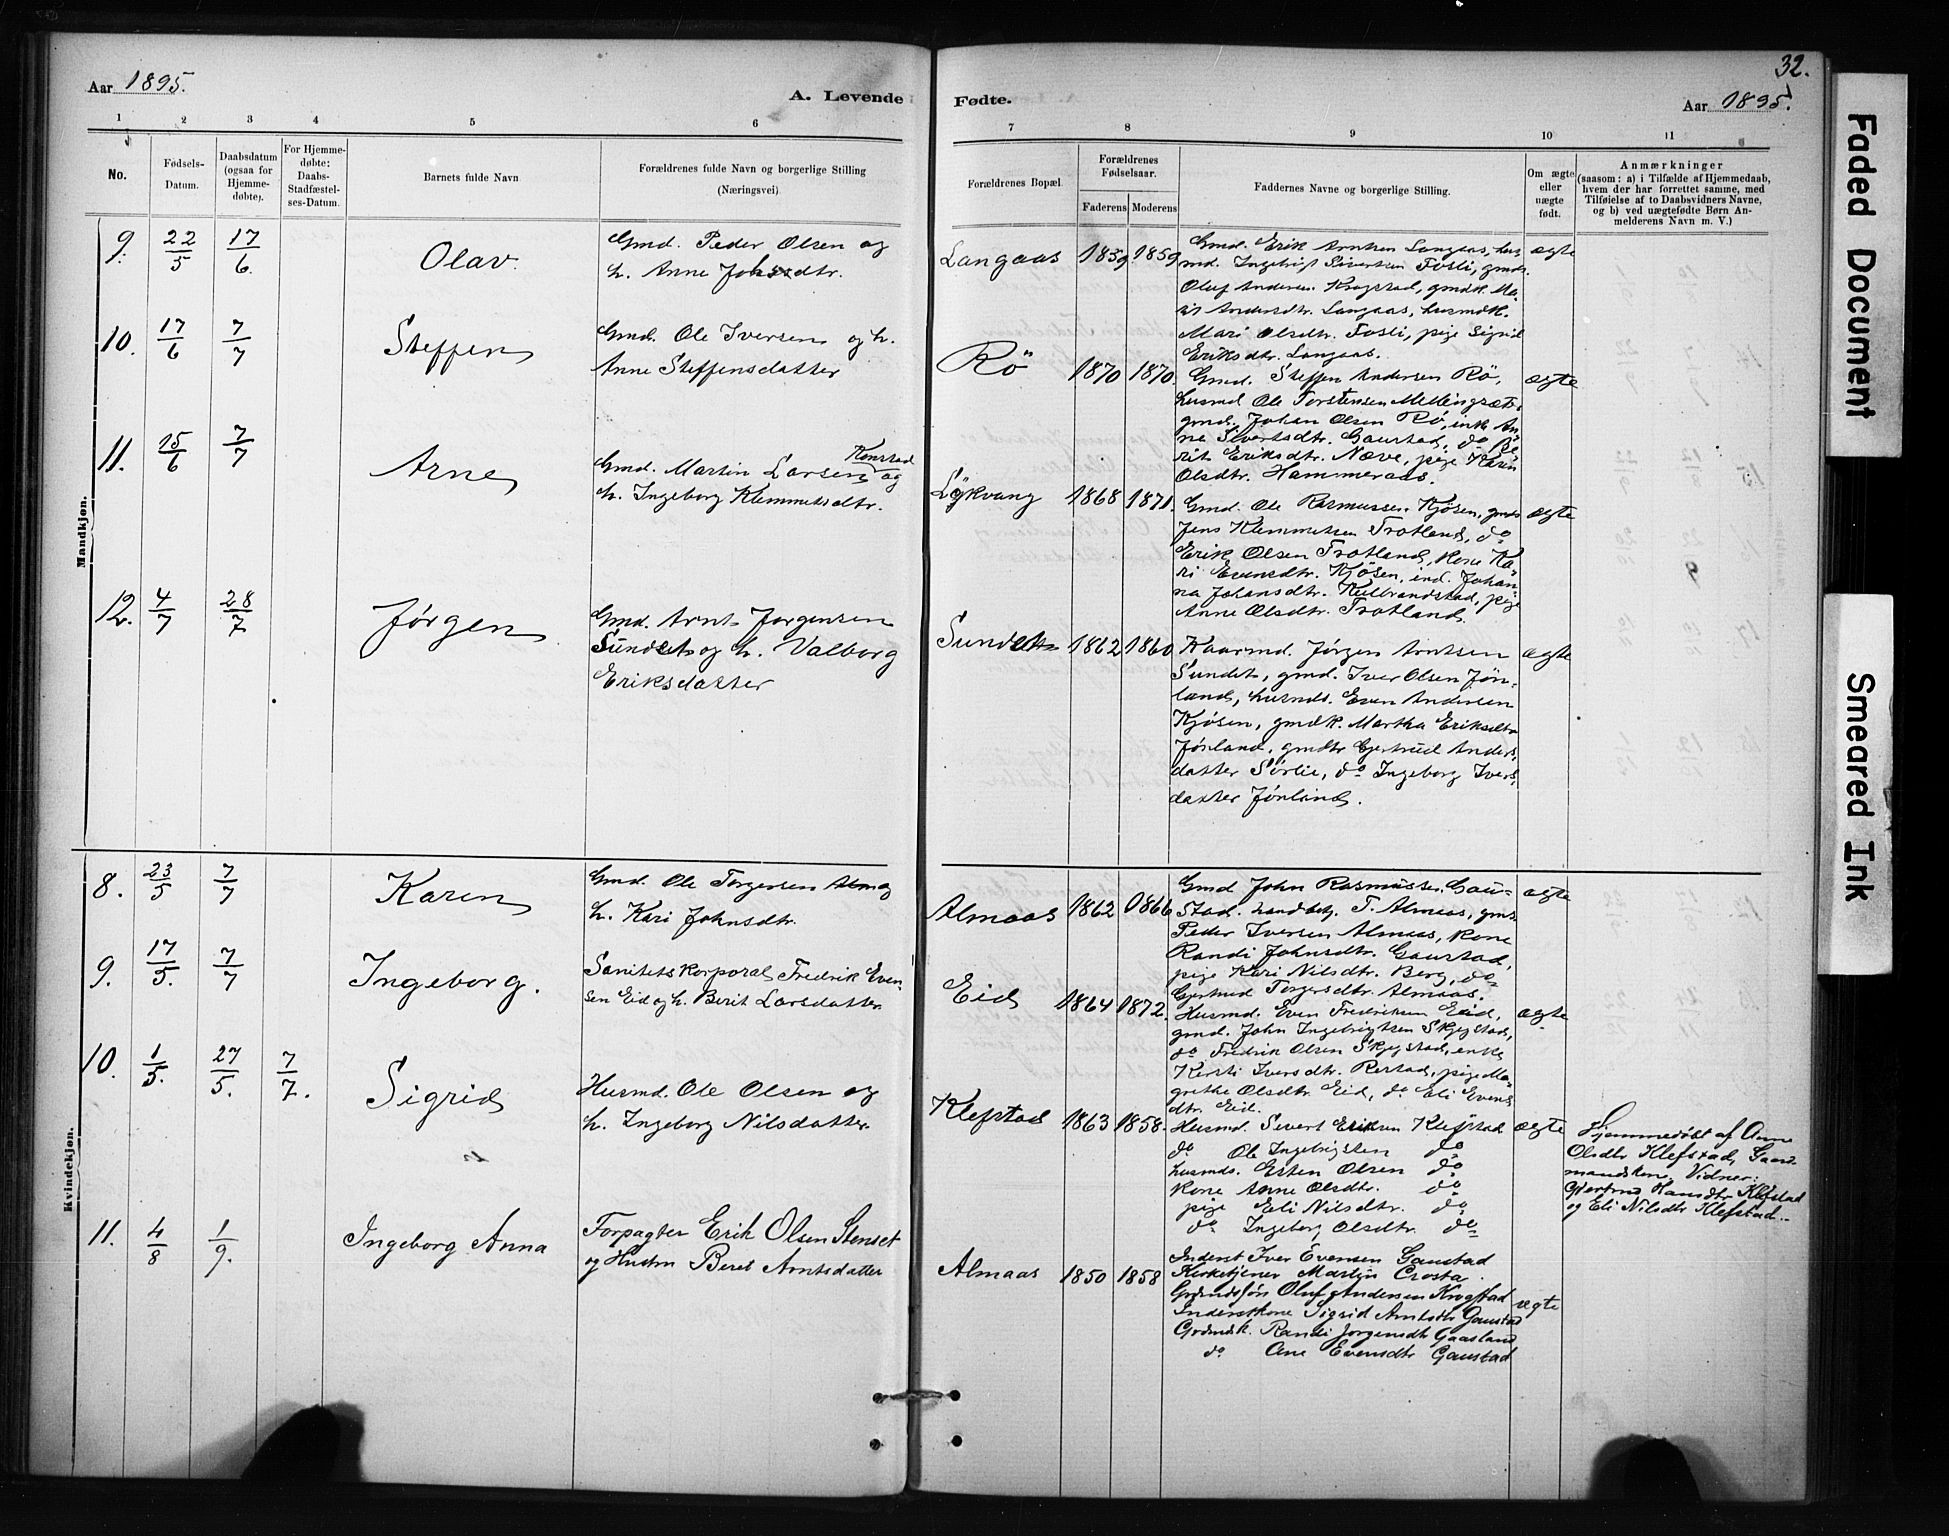 32.
Aar 1895.
A. Levende
Fødte.
Aar 1895.
1 2 3 4 5 6
7 8 9 10 11
No.
Fødsels-
Datum.
Daabsdatum
(ogsaa for
Hjemme-
døbte).
For Hjemme-
døbte:
Daabs-
Stadfæstel-
ses-Datum.
Barnets fulde Navn
Forældrenes fulde Navn og borgerlige Stilling
(Næringsvei).
Forældrenes Bopæl.
Forældrenes
Fødselsaar.
Faderens Moderens
Faddernes Navne og borgerlige Stilling.
Om ægte
eller
uægte
født.
Anmærkninger
(saasom: a) i Tilfælde af Hjemmedaab,
hvem der har forrettet samme, med
Tilføielse af to Daabsvidners Navne,
og b) ved uægtefødte Børn An-
melderens Navn m. V.)
Mandkjøn.
9. 22/5 17/6. Olav.
Gmd. Peder Olsen og
h. Anne Johnsdtr.
Langaas 1859 1859
Gmd. Erik Arntsen Langaas, hus-
md. Ingebrigt Sivertsen Fosli, gmds.
Oluf Andersen Krogstad, gmdk. Ma-
rit Andersdtr. Langaas, husmdk.
Mari Olsdtr. Fosli, pige Sigrid
Eriksdtr. Langaas.
ægte
10. 17/6 7/7 Steffen
Gmd. Ole Iversen og h.
Anne Steffensdatter
Rö 1870 1870.
Gmd. Steffen Andersen Rö,
husmd Ole Torstensen Mellingsæt.
gmd. Johan Olsen Rö, enk. An-
ne Sivertsdtr. Gaustad, do Be-
rit Eriksdtr. Næve, pige Karen
Olsdtr. Hammeraas.
ægte
11. 15/6 7/7 Arne
Gmd. Martin Larsen Konstad og
h. Ingeborg Klemmetsdtr.
Løkvang 1868 1871.
Gmd. Ole Rasmussen Kjøsen, gmds
Jens Klemmetsen Trotland, do
Erik Olsen Trotland, kone Ka-
ri Evensdtr. Kjøsen, ind. Johan-
na Johansdtr. Kulbrandstad, pige
Anne Olsdtr. Trotland.
ægte
12. 4/7 28/7 Jørgen
Gmd. Arnt Jørgensen
Sundet og h. Valborg
Eriksdatter
Sundet 1862 1860
Kaarmd. Jørgen Arntsen
Sundet, gmd. Iver Olsen Jøn-
land, husmds. Even Andersen
Kjøsen, gmdk. Martha Eriksdtr
Jønland, gmdtr Gjertrud Anders-
datter Sørlie, do Ingeborg Ivers-
datter Jønland.
ægte
Kvindekjøn.
8. 23/5 7/7 Karen
Gmd. Ole Torgersen Alm. og
h. Kari Johnsdtr.
Almaas 1862 1866
Gmd John Rasmussen Gau-
stad. Landbch. T. Almaas, gmds.
Peder Iversen Almaas, kone
Randi Johnsdtr. Gaustad,
pige Kari Nilsdtr. Berg, do
Gjertrud Torgersdtr. Almaas.
ægte
9. 17/5. 7/7 Ingeborg.
Sanitetskorporal Fredrik Even-
sen Eid og h. Berit Larsdatter
Eid 1864 1872.
Husmd. Even Fredriksen Eid,
gmd. John Ingebrigtsen Skjegstad,
do Fredrik Olsen Skjegstad, enke
Kirsti Iversdtr. Restad, pige Ma-
grethe Olsdtr. Eid, do Eli Evens-
dtr. Eid.
ægte
10. 1/5. 27/5. 7/7. Sigrid
Husmd. Ole Olsen og
h. Ingeborg Nilsdatter
Klefstad 1863 1858.
Husmd. Sivert Eriksen Klefstad
do Ole Ingebrigtsen do
husmds. Esten Olsen do
kone Anne Olsdtr. do
pige Eli Nilsdtr. do
do Ingeborg Olsdtr. do
ægte
Hjemmedøbt af Anne
Olsdtr Klefstad, Gaard-
mandskone, Vidner:
Gjertrud Hansdtr Klefstad
og Eli Nilsdtr Klefstad.
11. 4/8 1/9. Ingeborg Anna
Forpagter Erik Olsen Stenset
og Hustru Beret Arntsdatter
Almaas 1850 1858
Inderst Iver Evensen Gaustad
Kirketjener Martin Crosta
Grdmdssøn Oluf Andersen Krogstad
Inderstkone Sigrid Arntsdtr Gaustad
Grdmdsk. Randi Jørgensdtr Gaasland
do Ane Evensdtr Gaustad
ægte
Faded Document
Smeared Ink